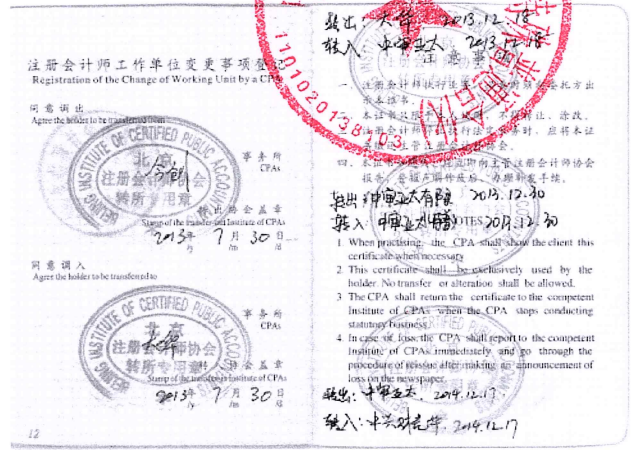 注册会计师工作单位变更事项登记
Registration of the Change of Working Unit by a CPA
同意调出
Agree the holder to be transferred from
BEIJING INSTITUTE OF CERTIFIED PUBLIC ACCOUNTANTS
北京
注册会计师协会
转所专用章
事务所
CPAs
转出协会盖章
Stamp of the transfer-out Institute of CPAs
2013年 7月 30日
/y /m /d
同意调入
Agree the holder to be transferred to
BEIJING INSTITUTE OF CERTIFIED PUBLIC ACCOUNTANTS
北京
注册会计师协会
转所专用章
大华
事务所
CPAs
转入协会盖章
Stamp of the transfer-in Institute of CPAs
2013年 7月 30日
/y /m /d
12
转出: 大华 2013.12.18
转入: 中审亚太 2013.12.18
注意事项
1101020138103
一、注册会计师执行业务,必要时须向委托方出
示本证书。
二、本证书只限于本人使用,不得转让、涂改。
三、注册会计师停止执行法定业务时,应将本证
书缴还主管注册会计师协会。
四、本证书如遗失,应立即向主管注册会计师协会
报告,登报声明作废后,办理补发手续。
转出: 中审亚太有限 2013.12.30
转入: 中审亚太 2013.12.30
NOTES
1 When practising, the CPA shall show the client this
certificate when necessary
2 This certificate shall be exclusively used by the
holder. No transfer or alteration shall be allowed.
3 The CPA shall return the certificate to the competent
Institute of CPAs when the CPA stops conducting
statutory business.
4 In case of loss, the CPA shall report to the competent
Institute of CPAs immediately and go through the
procedure of reissue after making an announcement of
loss on the newspaper.
转出: 中审亚太. 2014.12.17
转入: 中兴财光华. 2014.12.17